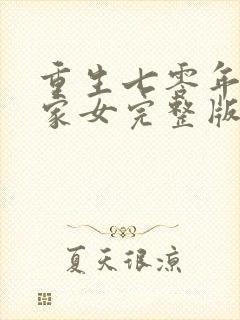 重生七零年
家女完整版
夏天很凉